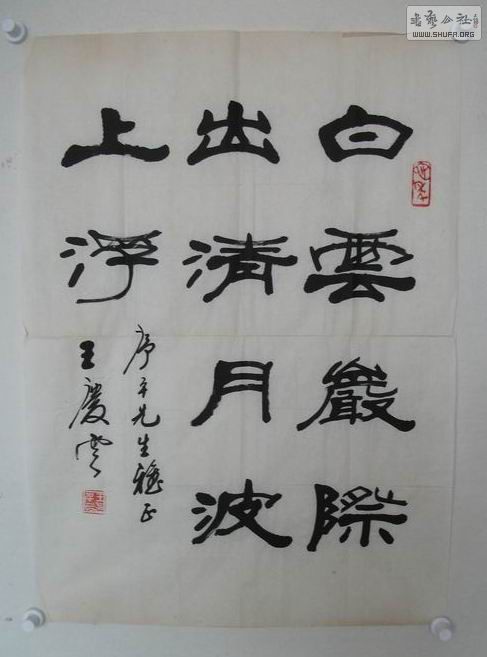 白雲巖際
出清月波
上浮
序平先生雅正
王慶雲
書藝公社
WWW.SHUFA.ORG